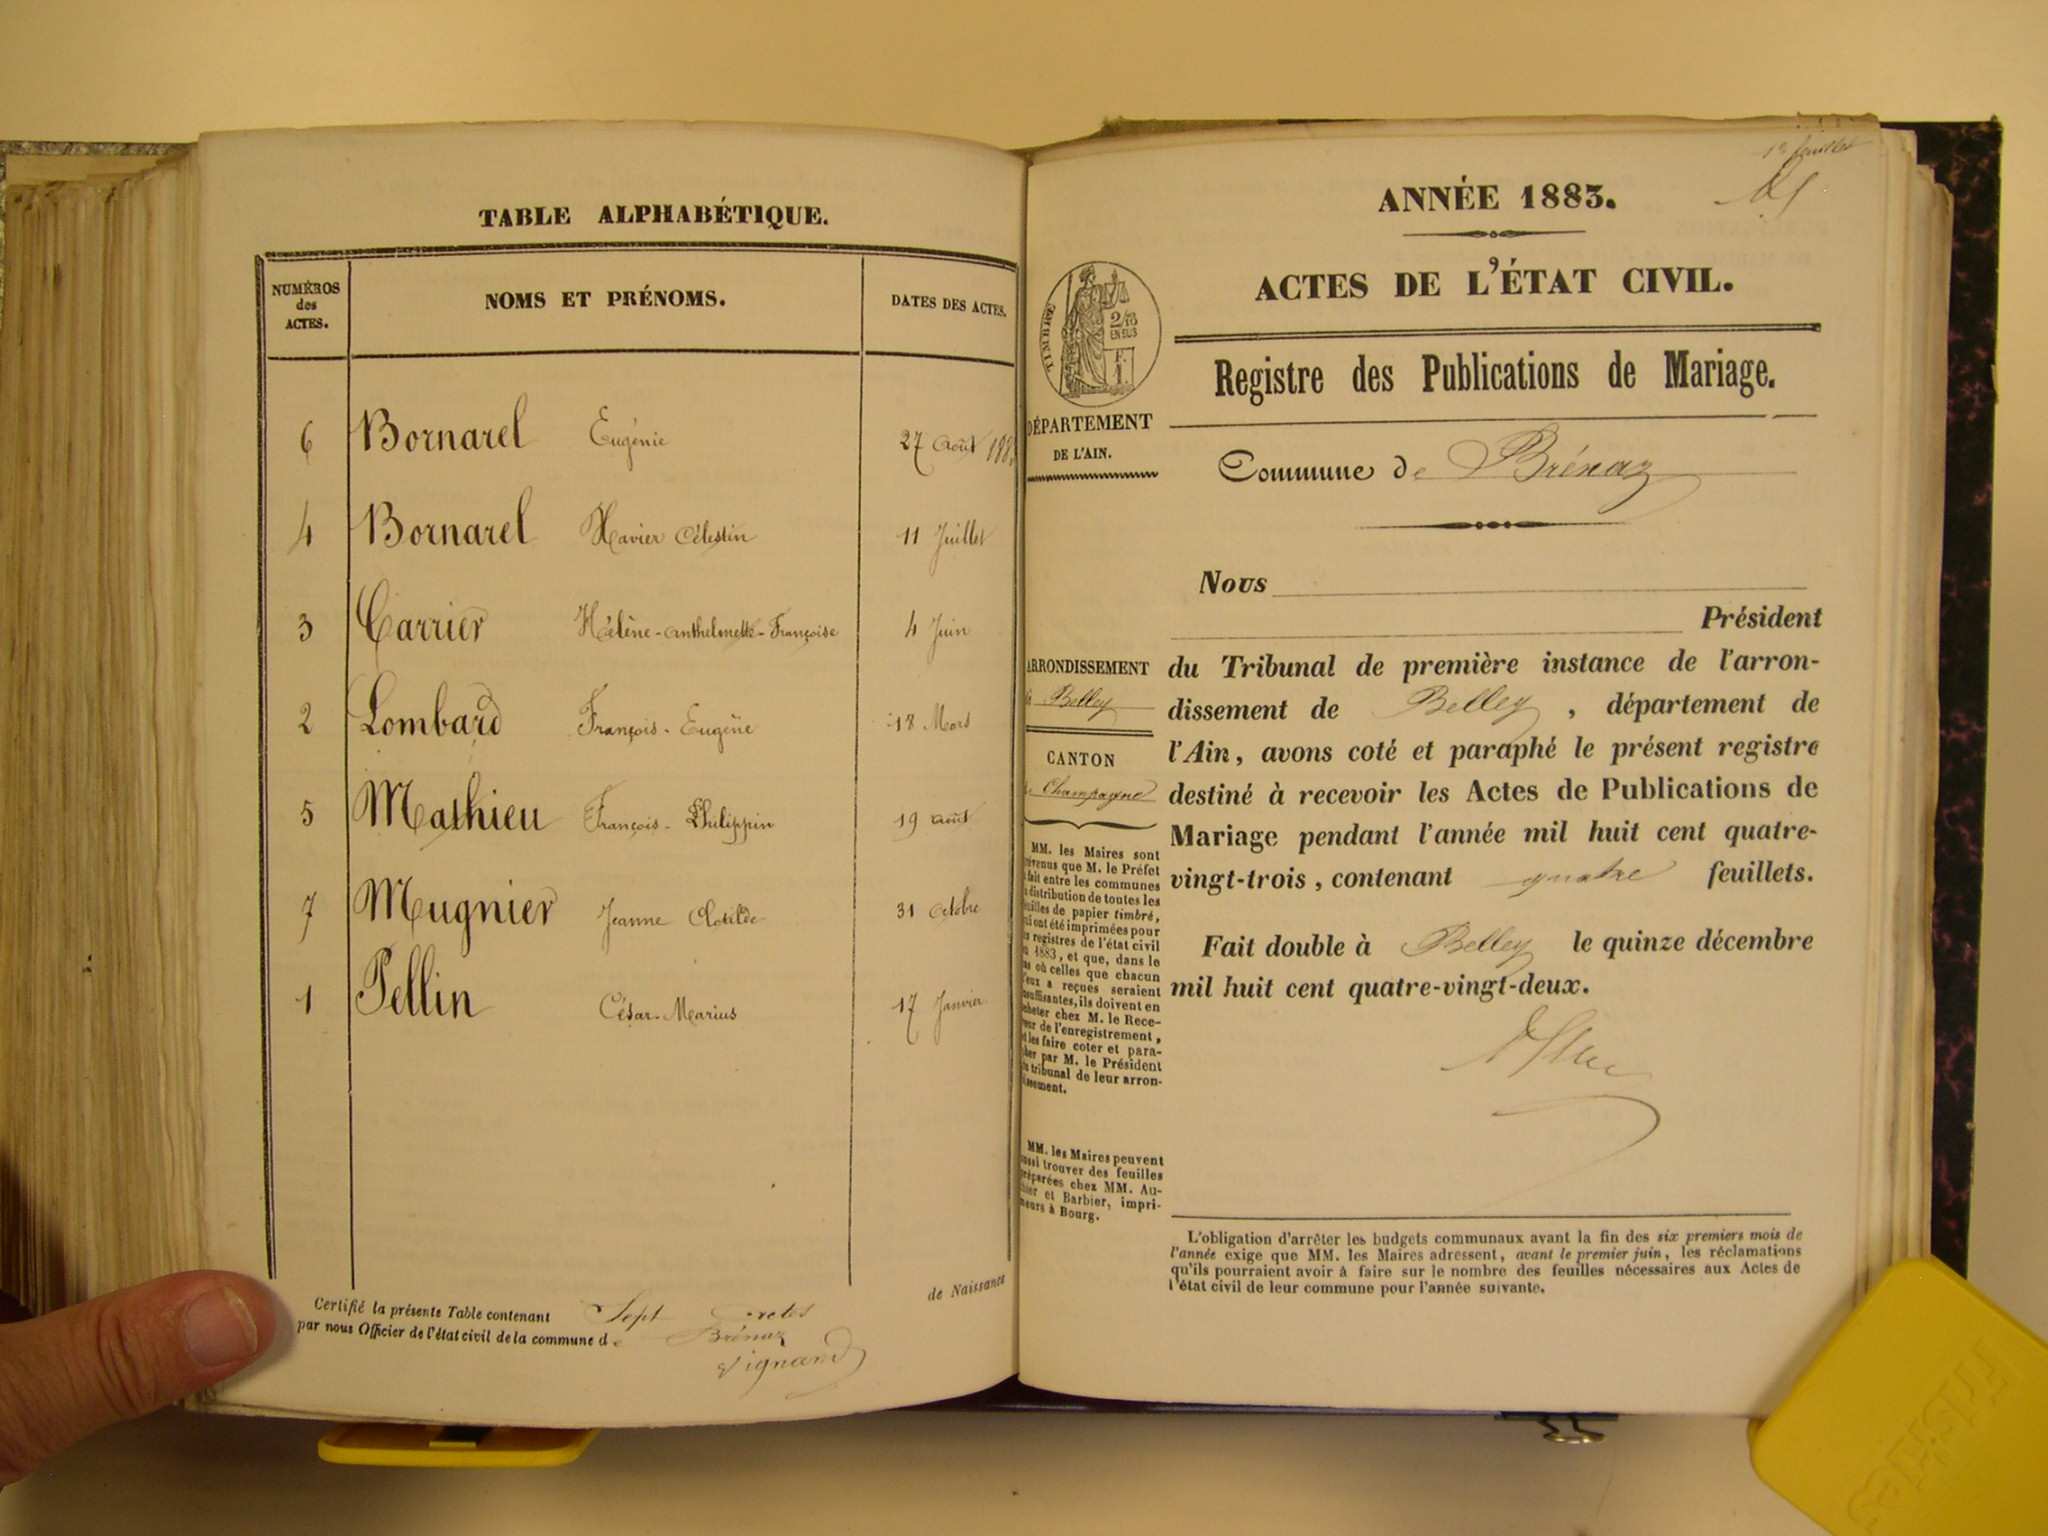 TABLE ALPHABÉTIQUE.
NUMÉROS
des
ACTES.
NOMS ET PRÉNOMS.
DATES DES ACTES.
6 Bornarel Eugénie 27 Août
4 Bornarel Xavier Célestin 11 Juillet
3 Carrier Hélène-Anthelmette-Françoise 4 Juin
2 Lombard François-Eugène 18 Mars
5 Mathieu François-Philippin 19 Août
7 Mugnier Jeanne Clotilde 31 Octobre
1 Pellin César-Marius 17 Janvier
Certifié la présente Table contenant Sept actes de Naissance
par nous Officier de l'état civil de la commune de Brénaz
Vignand
1er feuillet
ANNÉE 1883.
ACTES DE L'ÉTAT CIVIL.
TIMBRE
2/10
EN SUS
F.
1.
DÉPARTEMENT
DE L'AIN.
Registre des Publications de Mariage.
Commune de Brénaz
Nous
Président
ARRONDISSEMENT
de Belley
CANTON
de Champagne
du Tribunal de première instance de l'arron-
dissement de Belley, département de
l'Ain, avons coté et paraphé le présent registre
destiné à recevoir les Actes de Publications de
Mariage pendant l'année mil huit cent quatre-
vingt-trois, contenant quatre feuillets.
Fait double à Belley le quinze décembre
mil huit cent quatre-vingt-deux.
MM. les Maires sont
prévenus que M. le Préfet
a fait entre les communes
la distribution de toutes les
feuilles de papier timbré,
qui ont été imprimées pour
les registres de l'état civil
en 1883, et que, dans le
cas où celles que chacun
d'eux a reçues seraient
insuffisantes, ils doivent en
acheter chez M. le Rece-
veur de l'enregistrement,
et les faire coter et para-
pher par M. le Président
du tribunal de leur arron-
dissement.
MM. les Maires peuvent
aussi trouver des feuilles
préparées chez MM. Au-
thier et Barbier, impri-
meurs à Bourg.
L'obligation d'arrêter les budgets communaux avant la fin des six premiers mois de
l'année exige que MM. les Maires adressent, avant le premier juin, les réclamations
qu'ils pourraient avoir à faire sur le nombre des feuilles nécessaires aux Actes de
l'état civil de leur commune pour l'année suivante.
Friskies